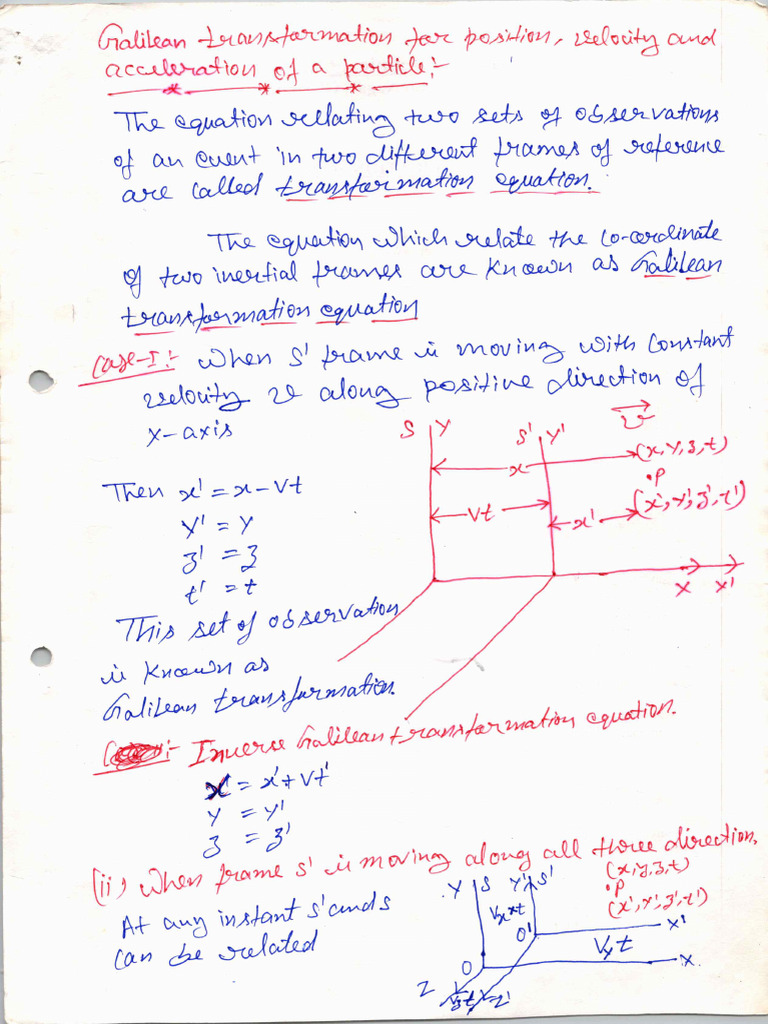 Galilean transformation for position, velocity and
acceleration of a particle:-
The equation rellating two sets of observations
of an event in two different frames of reference
are called transformation equation.
The equation which relate the co-cordinate
of two inertial frames are known as Galilean
transformation equation
Case-I:- When S' frame is moving with constant
velocity v along positive direction of
x-axis
S Y S' Y' v
x (x,y,z,t)
.P
Then x' = x-vt
Vt x' (x',y',z',t')
y' = y
z' = z
t' = t
X X'
This set of observation
is known as
Galilean transformation.
:- Inverse Galilean transformation equation.
x = x'+vt'
y = y'
z = z'
(ii) When frame s' is moving along all three direction.
Y S Y' S' (x,y,z,t)
.P
(x',y',z',t')
At any instant s' and s
can be related
O' X'
Vyt
O X
Z Z'